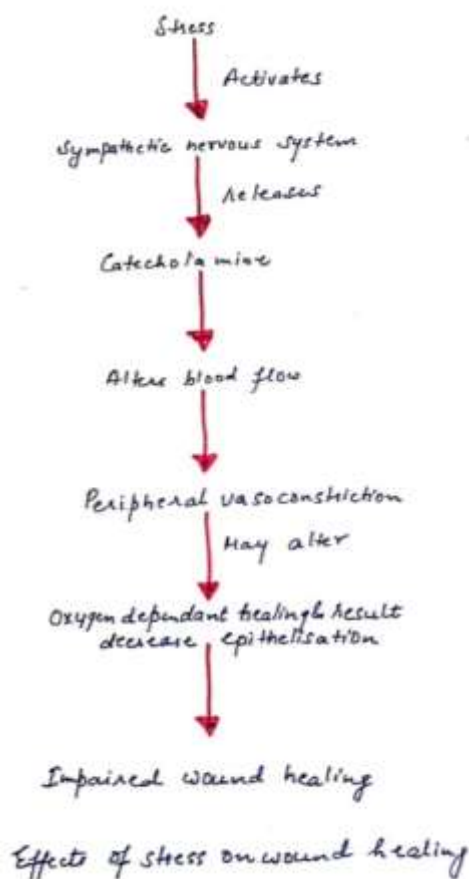 Stress
Activates
Sympathetic nervous system
releases
Catecholamine
Alters blood flow
Peripheral vasoconstriction
May alter
Oxygen dependant healing & result
decrease epithelisation
Impaired wound healing
Effects of stress on wound healing